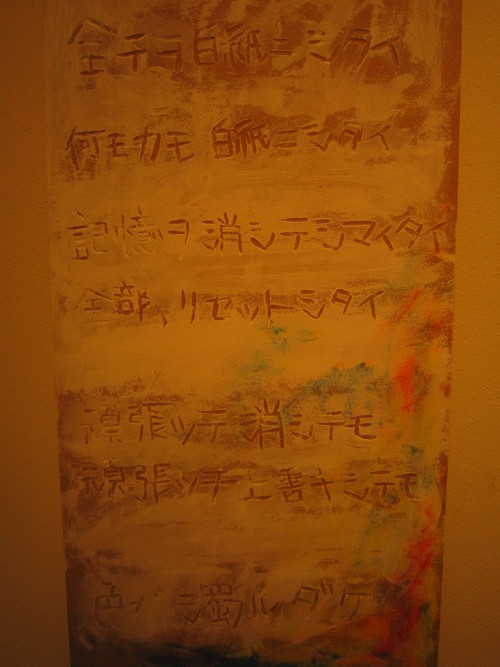 全テヲ白紙ニシタイ
何モカモ白紙ニシタイ
記憶ヲ消シテシマイタイ
全部、リセットシタイ
頑張ッテ消シテモ
頑張ッテ上書キシテモ
色ガ濁ルダケ